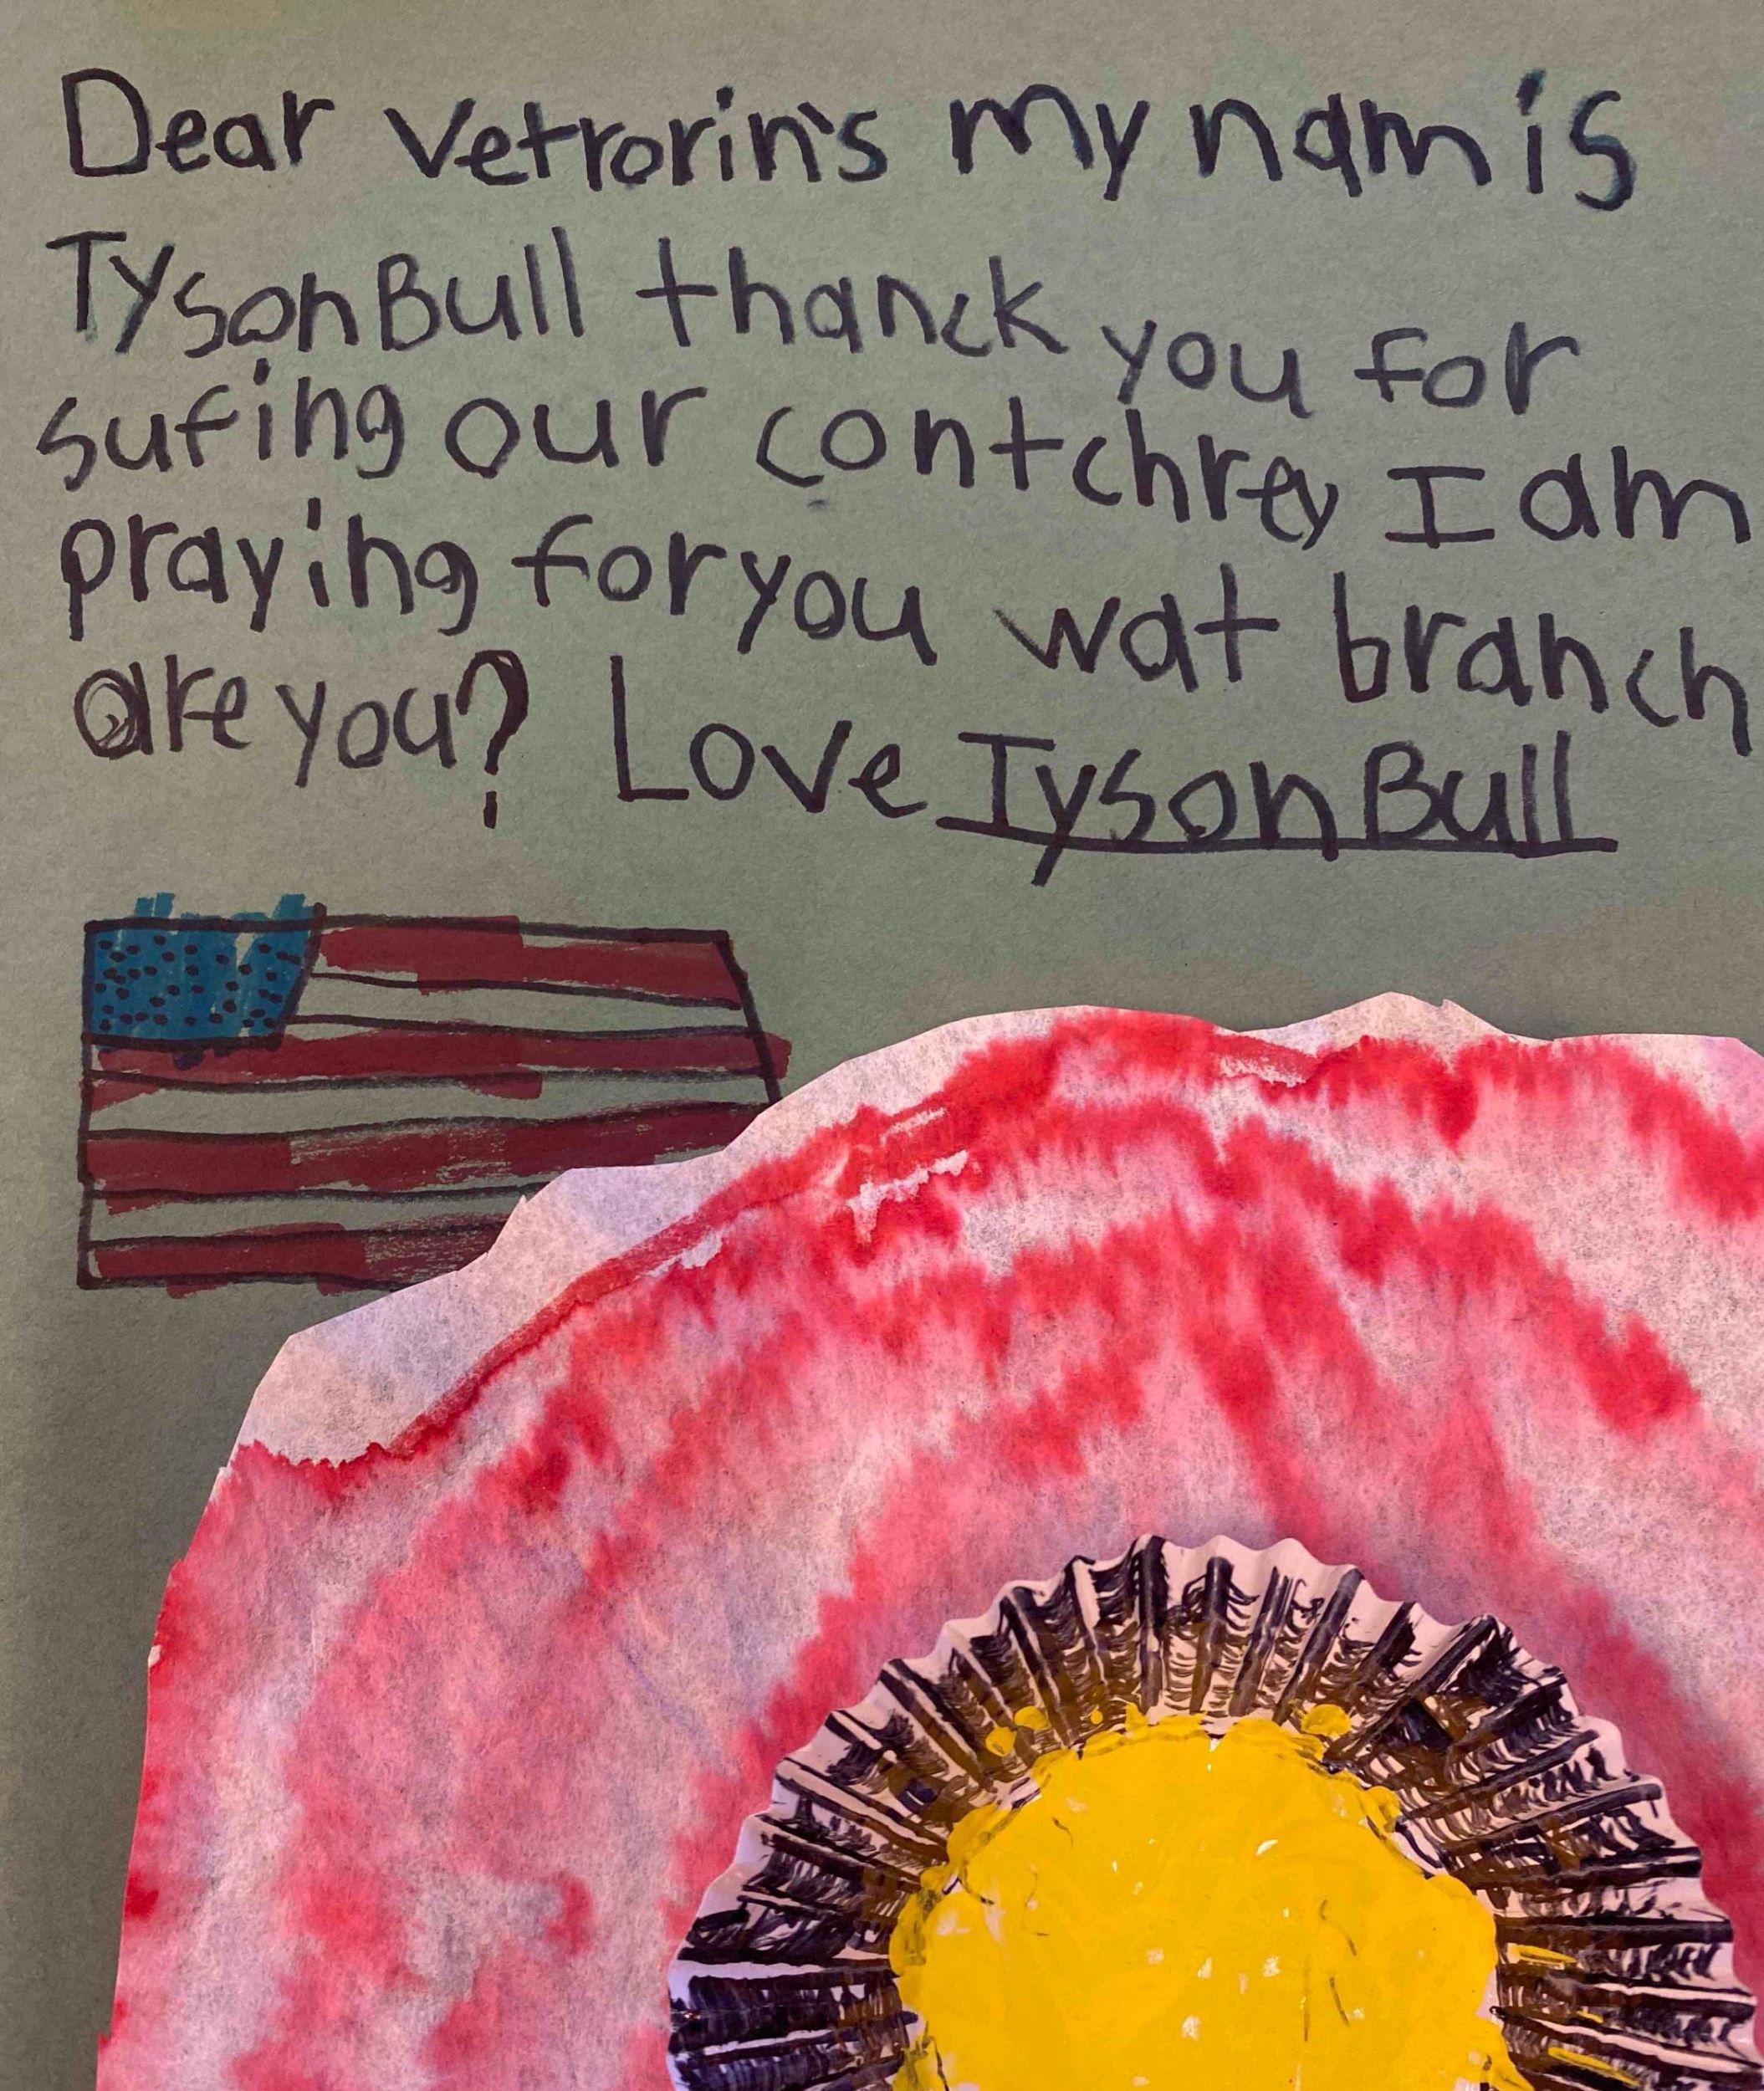 Dear Vetrorin's my nam is
Tyson Bull thanck you for
sufing our contchrey I am
praying for you wat branch
are you? Love Tyson Bull